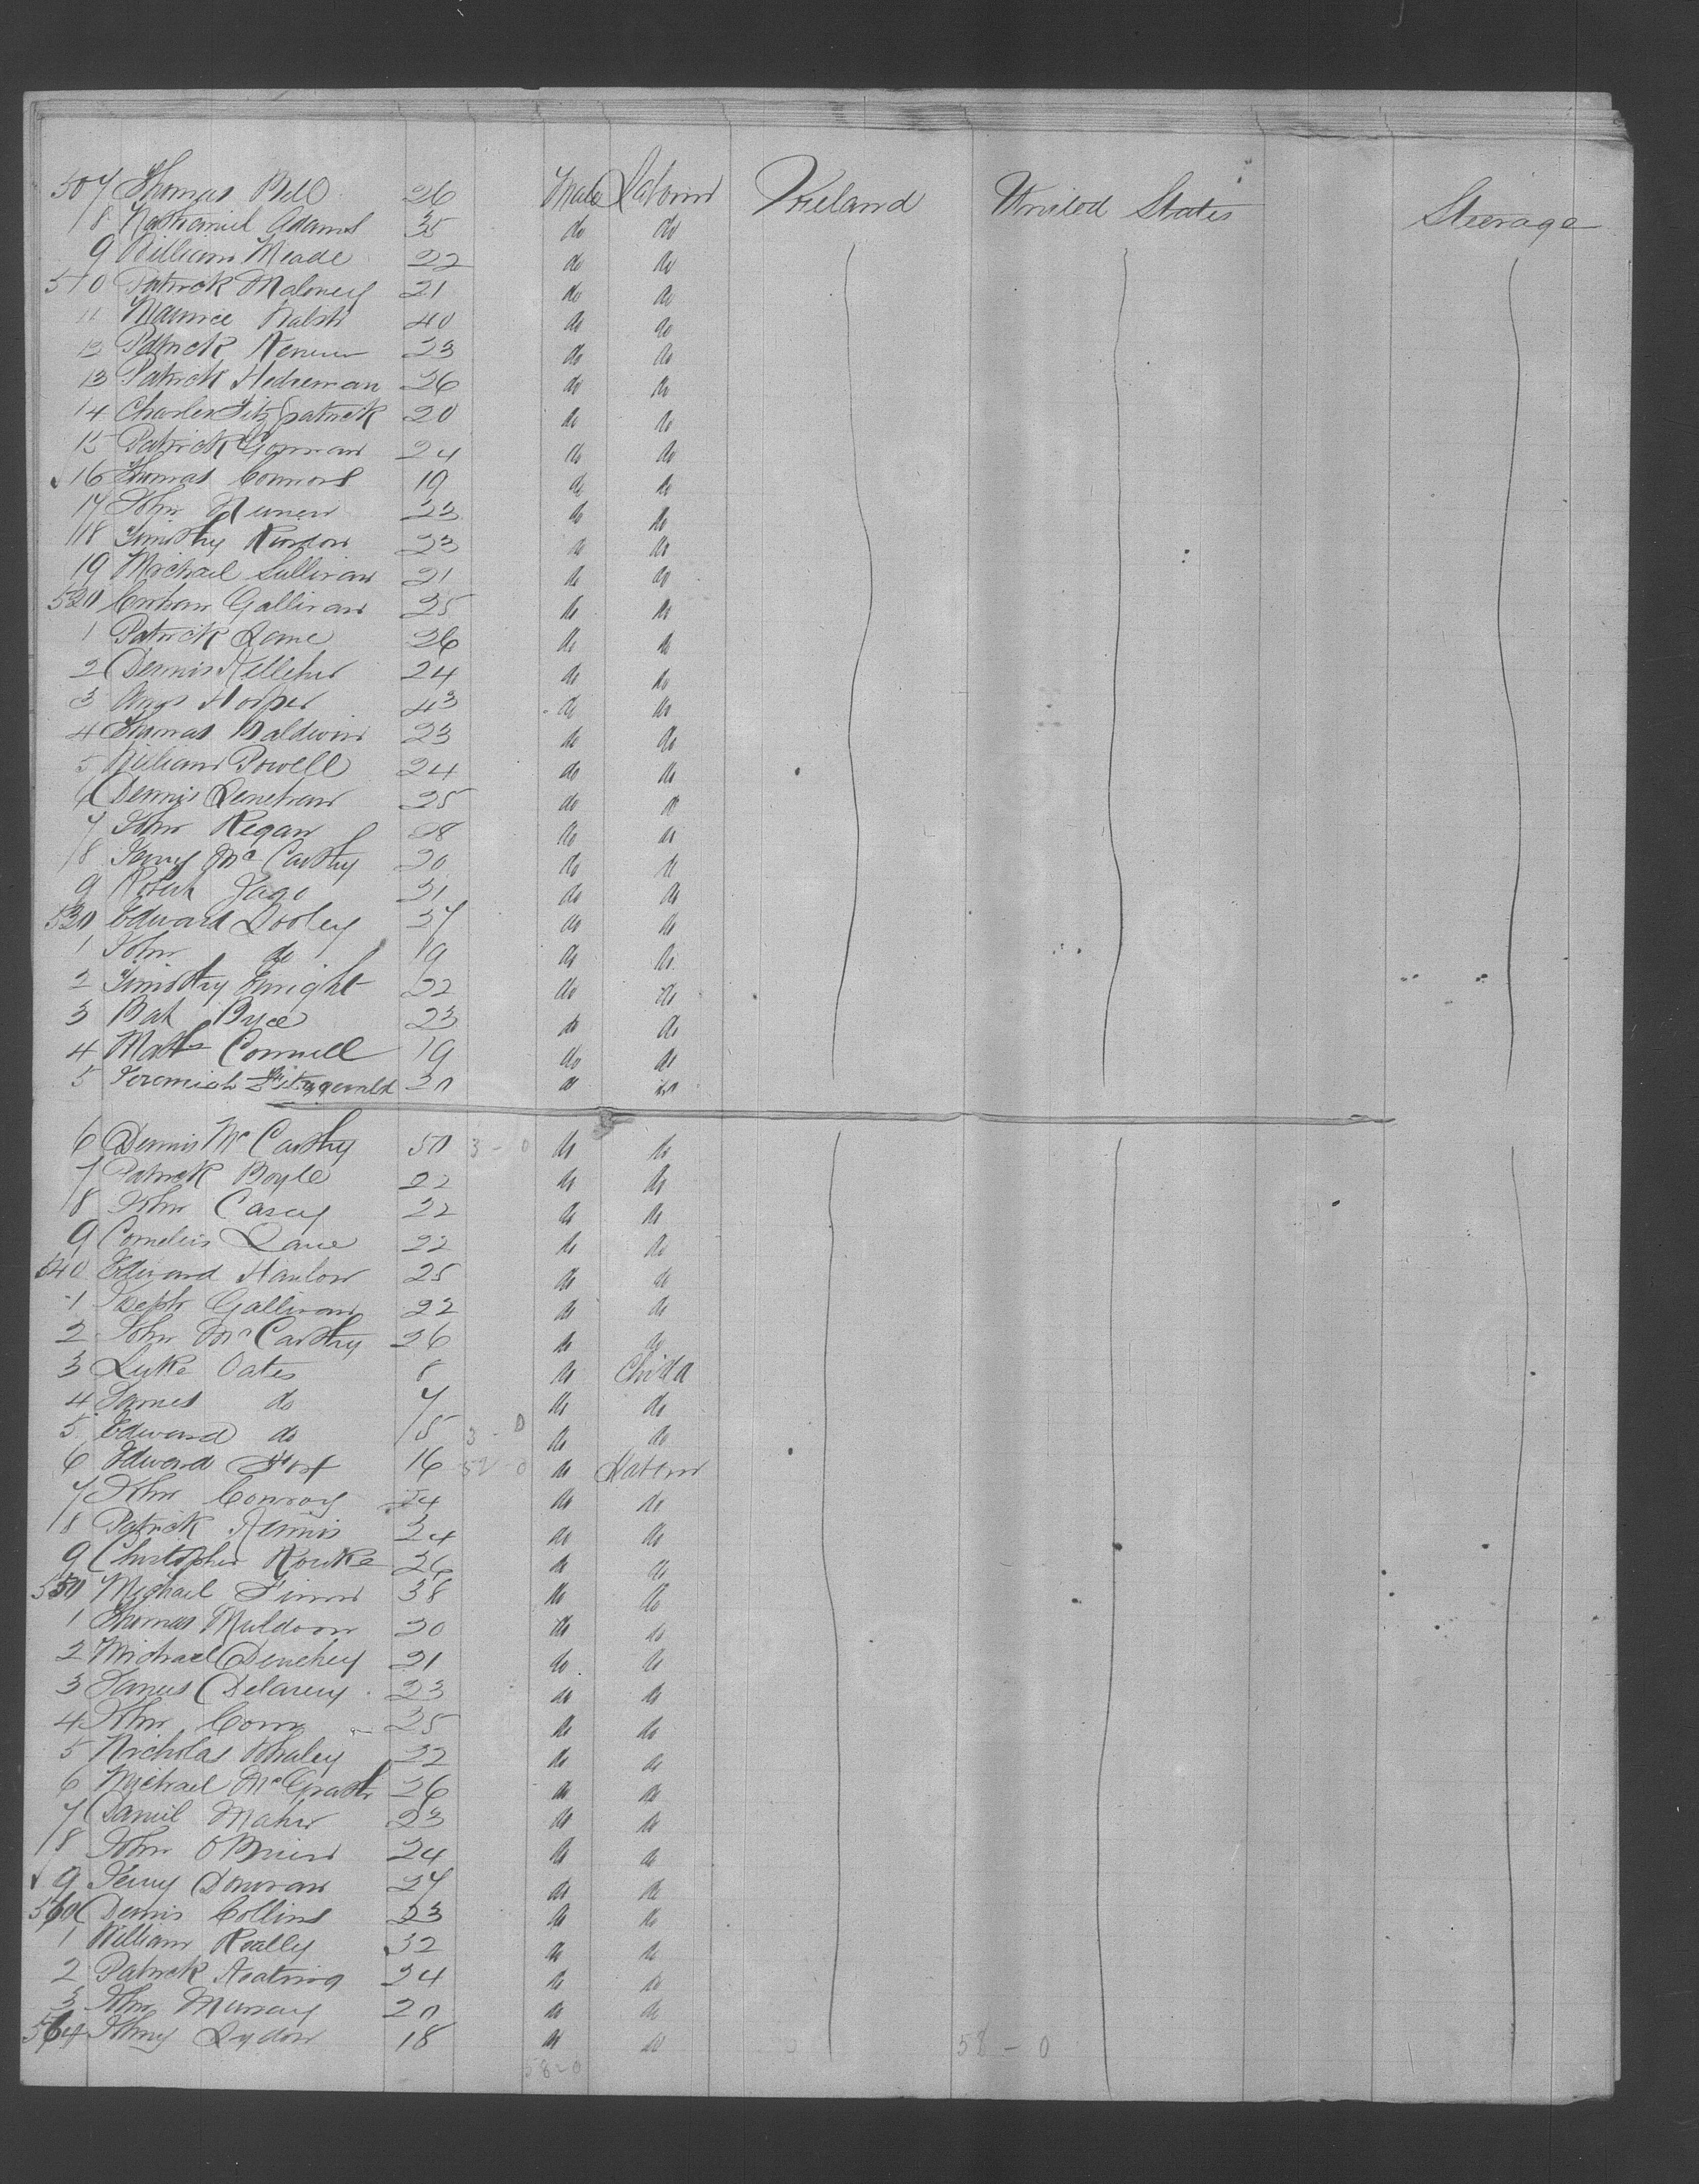 507 Thomas Bell 26 Male Laborer Ireland United States Steerage
8 Nathaniel Adams 35 do do
9 William Meade 22 do do
510 Patrick Maloney 21 do do
11 Maurice Walsh 40 do do
12 Patrick 23 do do
13 Patrick 26 do do
14 Charles Fitzpatrick 20 do do
15 Patrick Gorman 24 do do
16 Thomas Connors 19 do do
17 John 23 do do
18 Timothy Riordon 23 do do
19 Michael Sullivan 21 do do
520 Gallivan 25 do do
1 Patrick Lane 26 do do
2 Dennis Kelleher 24 do do
3 43 do do
4 Thomas Baldwin 23 do do
5 William Powell 24 do do
6 Dennis Lenehan 25 do do
7 John Regan 28 do do
8 Mc Carthy 20 do do
9 Robert Jago 21 do do
530 Edward Dooley 27 do do
1 John do 19 do do
2 Timothy Enright 22 do do
3 Bat 23 do do
4 Connell 19 do do
5 Jeremiah Fitzgerald 20 do do
6 Dennis Mc Carthy 50 3 - 0 do do
7 Patrick Boyle 22 do do
8 John Casey 22 do do
9 Cornelius Lane 22 do do
540 Edward Hanlon 25 do do
1 Joseph Gallivan 22 do do
2 John Mc Carthy 26 do do
3 Luke Oates 8 do Child
4 James do 7 do do
5 Edward do 3 - 0 do do
6 Edward 16 do Laborer
7 John Conroy do do
8 Patrick 24 do do
9 Christopher Rourke 26 do do
550 Michael 38 do do
1 Thomas Muldoon 20 do do
2 Michael Denehey 21 do do
3 James Delaney 23 do do
4 John 25 do do
5 Nicholas Whaley 22 do do
6 Michael McGrath 26 do do
7 Daniel Maher 23 do do
8 John O Brien 24 do do
9 Donovan 27 do do
560 Dennis Collins 23 do do
1 William Really 32 do do
2 Patrick Keating 24 do do
3 John Murray 20 do do
564 Lydon 18 do do
58-0 58 - 0